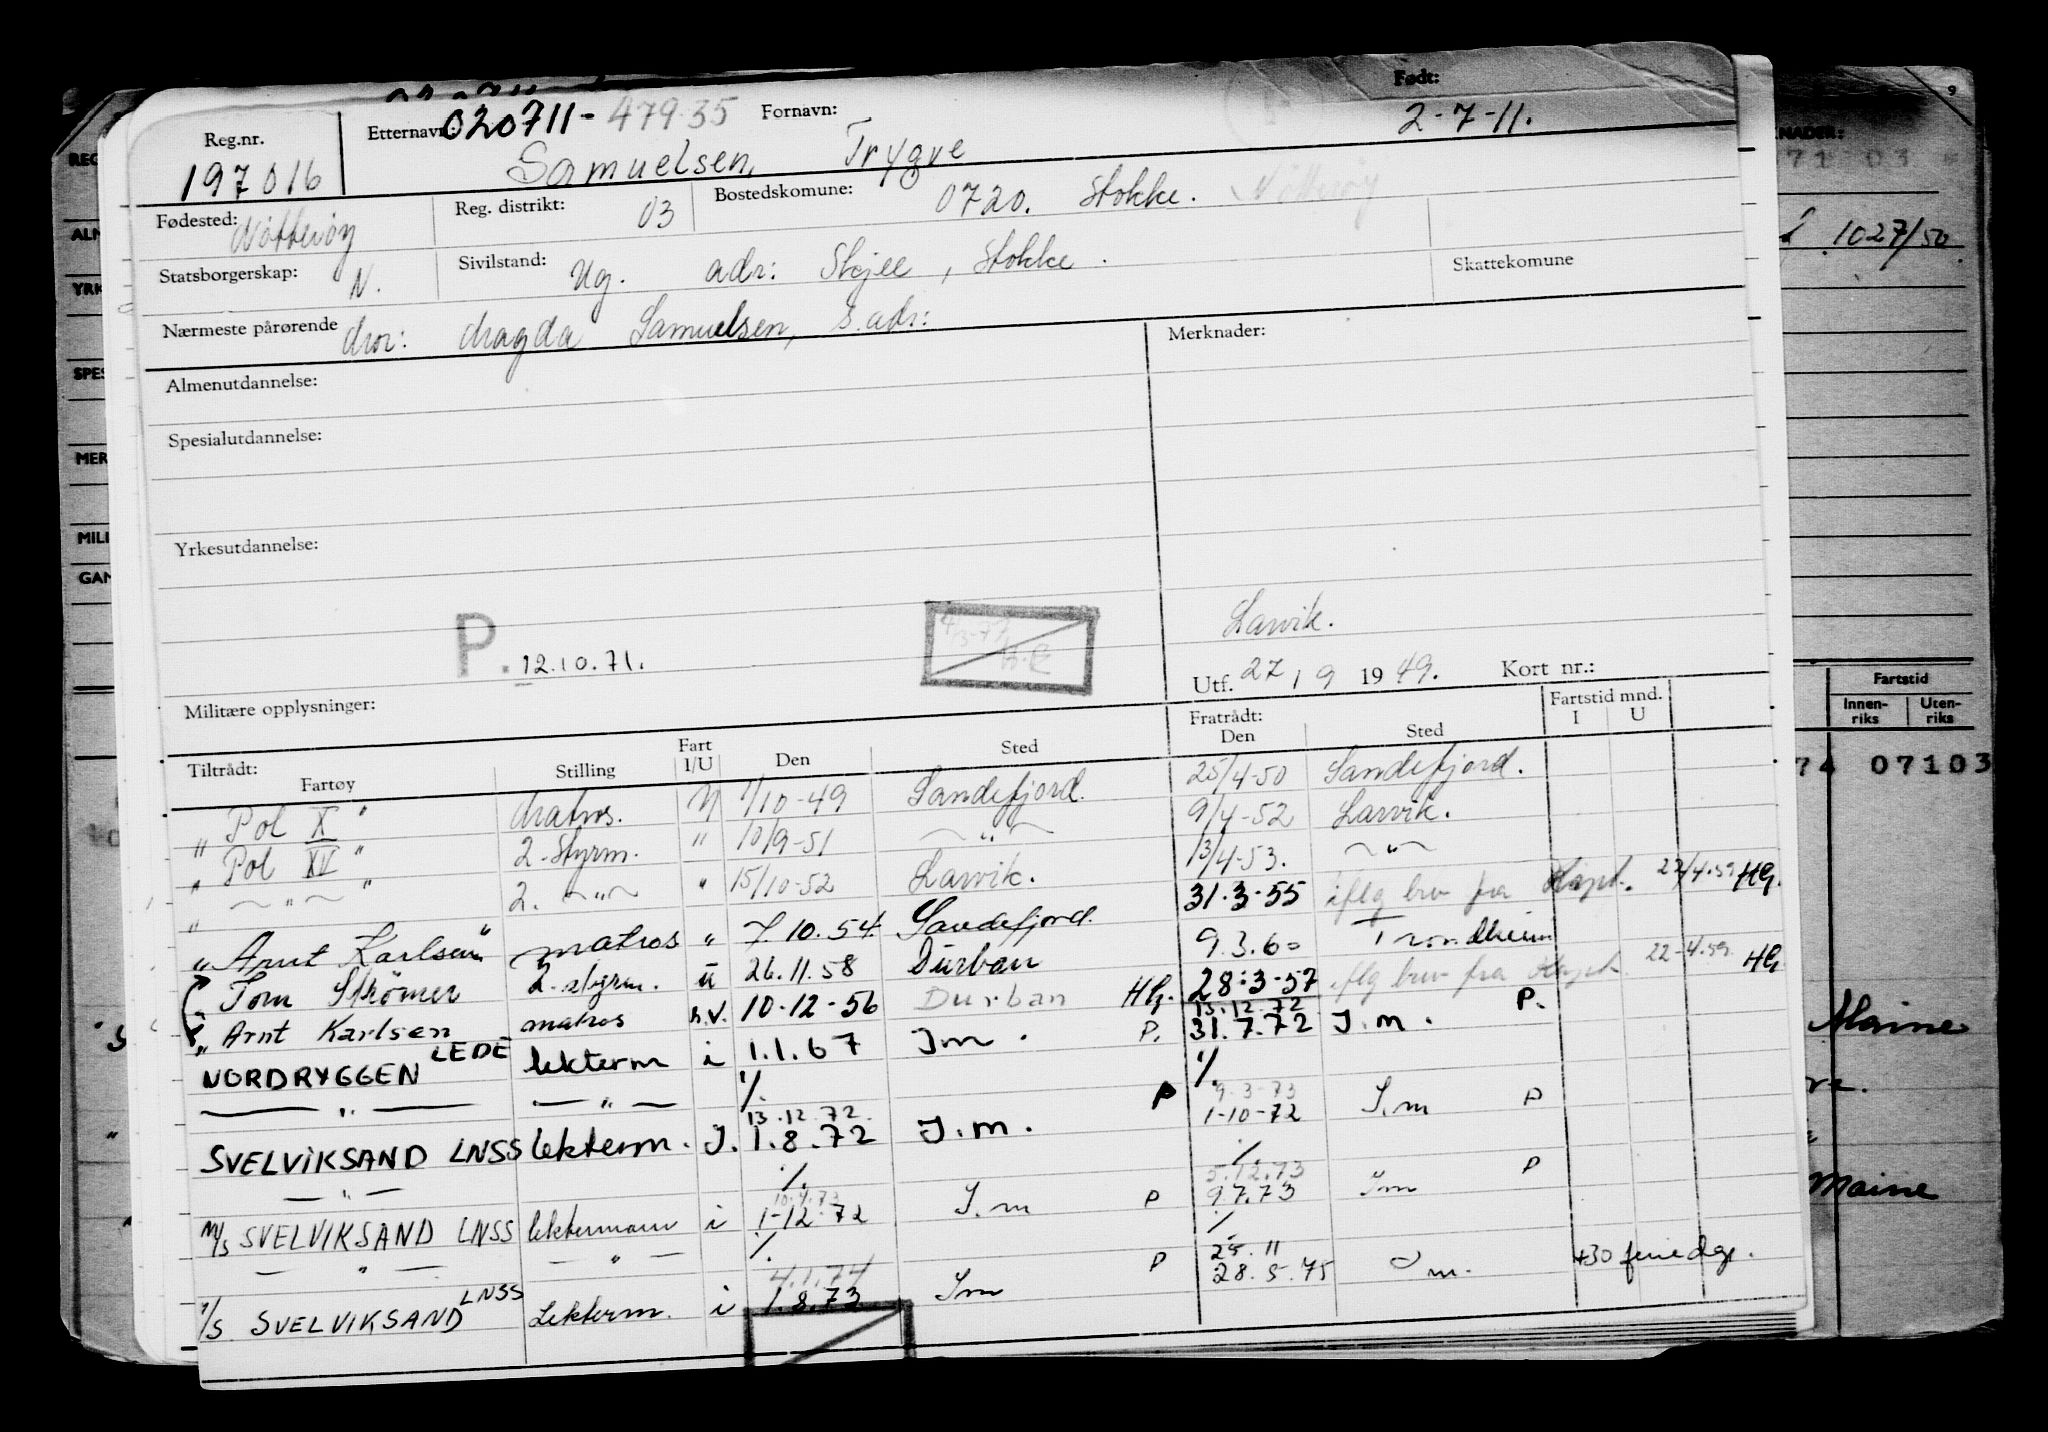 Reg.nr. Etternavn: 020711-47935 Fornavn: Født:
197016 Samuelsen, Trygve 2-7-11.
Fødested: Nøtterøy Reg. distrikt: 03 Bostedskomune: 0720. Stokke. Nøtterøy
Statsborgerskap: N. Sivilstand: Ug. adr: Skjee, Stokke. Skattekomune
Nærmeste pårørende mor: Magda Samuelsen, s.adr: Merknader:
Almenutdannelse:
Spesialutdannelse:
Yrkesutdannelse:
P. 12.10.71.
Larvik.
Utf. 27 / 9 1949. Kort nr.:
Militære opplysninger:
Tiltrådt: Fratrådt: Fartstid mnd.
Fartøy Stilling Fart I/U Den Sted Den Sted I U
"Pol X" Matros. U 1/10-49 Sandefjord. 25/4-50 Sandefjord.
"Pol XV" 2. Styrm. " 10/9-51 —"— 9/4-52 Larvik.
" —"— " 2. —"— " 15/10-52 Larvik. 13/4-53. —"—
"Arnt Karlsen" matros " 7.10.54. Sandefjord. 31.3-55 iflg brev fra Kapt. 22/4.59 HG.
Tom Strömer 2. styrm. u 26.11.58 Durban 9.3.60 Trondheim
" Arnt Karlsen matros h.v. 10-12-56 Durban HG. 28-3-57 iflg brev fra Kapt. 22-4.59. HG
NORDRYGGEN LEDE lekterm i 1.1.67 Jm. P. 13.12.72 31.7.72 J.m. P.
—"— —"— 1/. 1/.
SVELVIKSAND LNSS lekterm. J. 13.12.72. 1.8.72 J.m. P 9-3-73 1-10-72 J.m P
—"— 1/. 1/.
M/S SVELVIKSAND LNSS lektermann i 10.4.73 1-12-72 J.m P 5.12.73 9.7.73 Jm P
—"— —"— 1/. 1/.
1/S SVELVIKSAND LNSS Lekterm. i 4.1.74 1.8.73 Jm P 25.11 28.5.75 Jm. +30 feriedgr.
KNADER:
71 03
1027/50
Fartstid
Innen-riks Uten-riks
74 07103
Maine
Maine
REG
ALM
YRK
SPES
MER
MILI
GAN